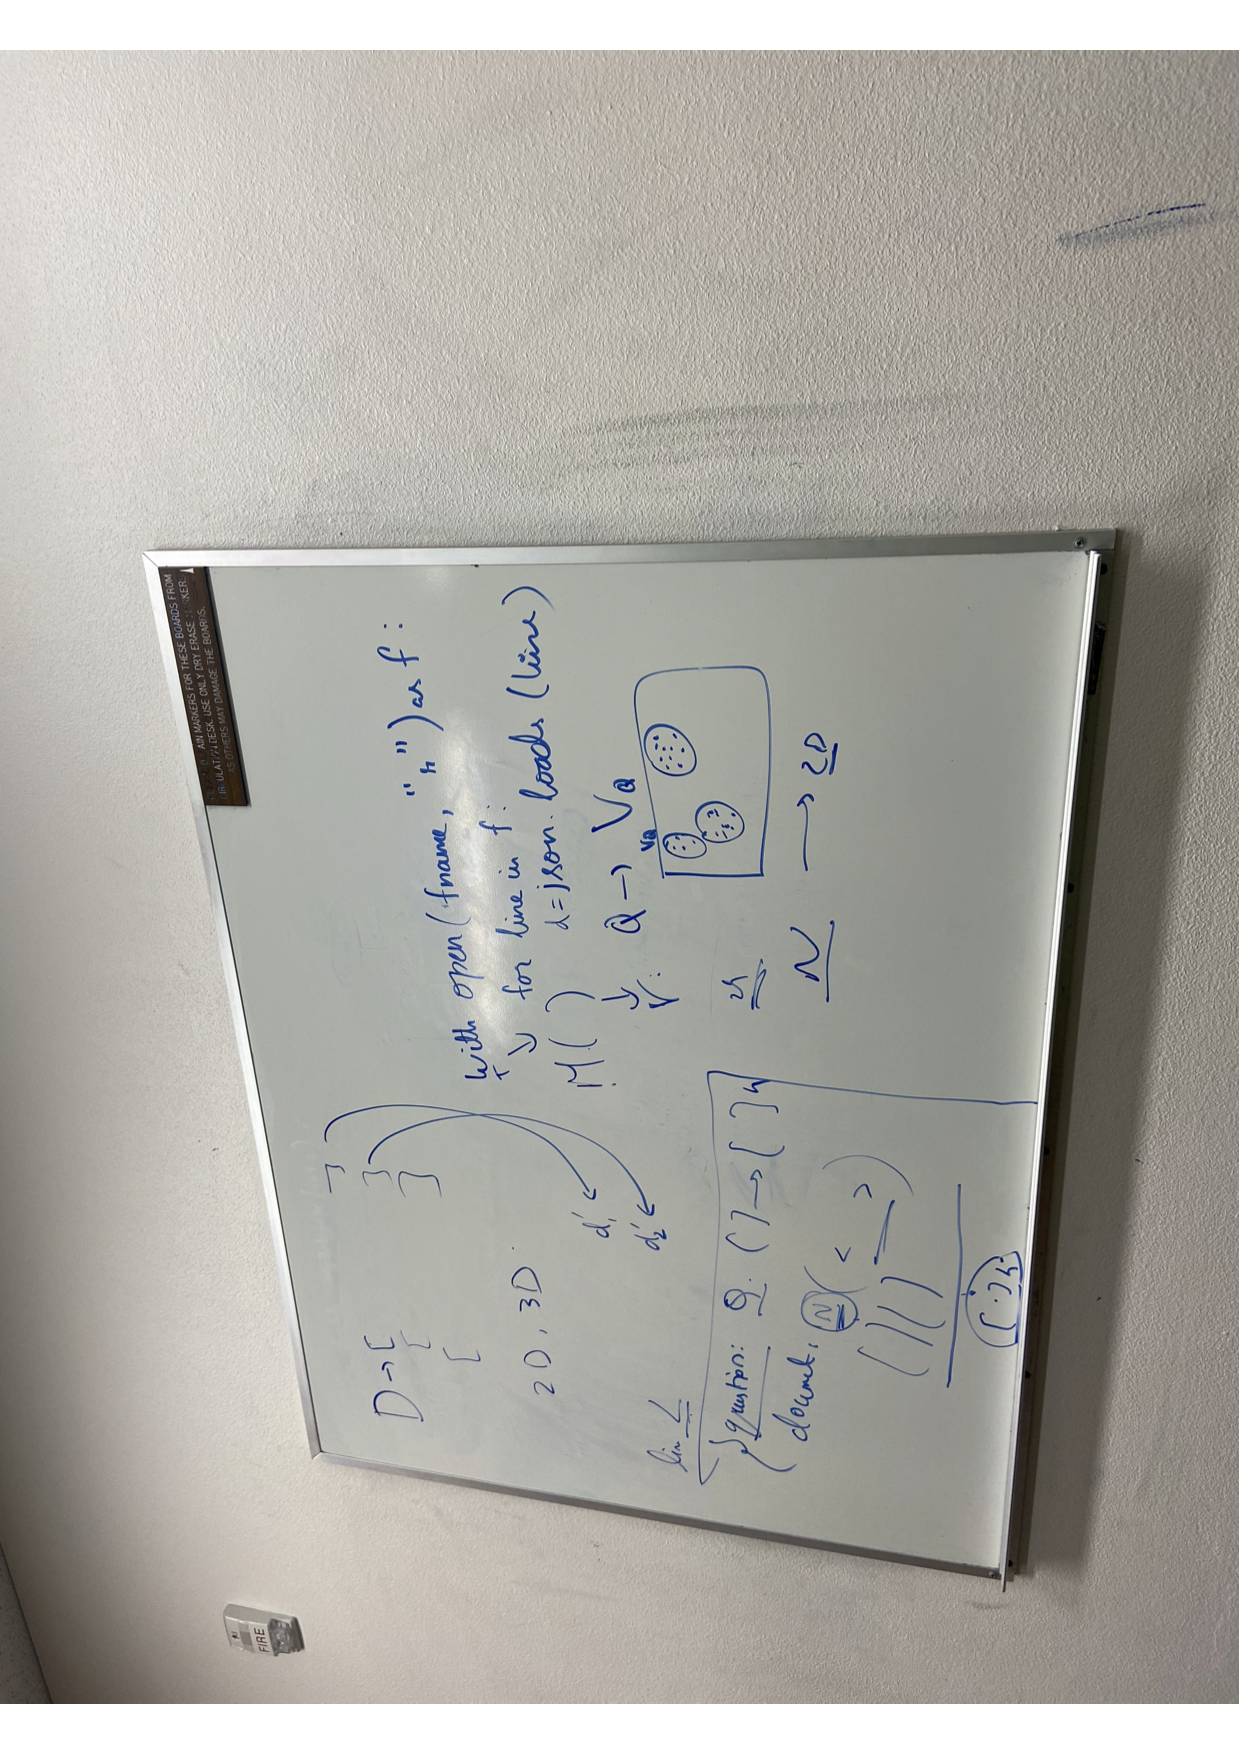 AIN MARKERS FOR THESE BOARDS FROM
DESK. USE ONLY DRY ERASE
AS OTHERS MAY DAMAGE THE BOARDS.
FIRE
D → [ ]
[ ]
[ ]
2D, 3D
d'₁
d'₂
with open(fname, "r") as f:
for line in f:
d = json.loads(line)
M( )
Q → V_Q
V:
V_Q
N → 2D
lin
{question: Q. [ ] → [ ]
document: N